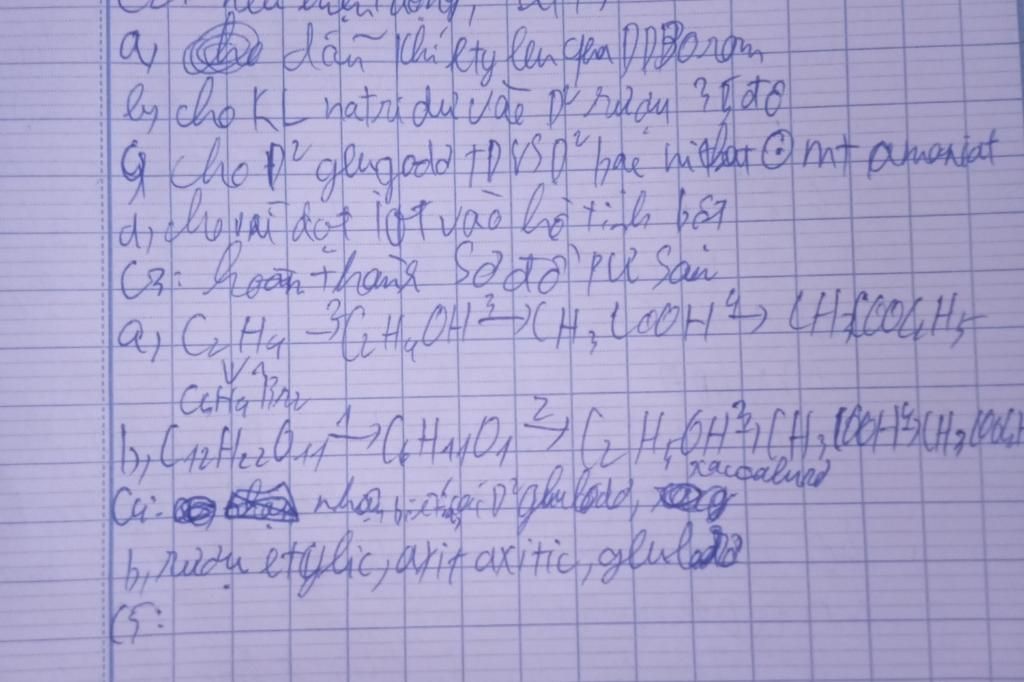 a, dẫn khí etylen qua DD Brom
b, cho KL natri dư vào D² rượu độ
cho D² glugodơ + D² bạc nitrat mt amoniat
d, cho vài giọt iot vào hồ tinh bột
C3: hoàn thành sơ đồ pư sau
a, C2H4 → C2H4OH 3→ CH3COOH 4→ CH3COOC2H5
b, C12H22O11 1→ C6H11O1 2→ C2H5OH 3→ CH3COOH 4→ CH3COOC2H
xaccalurơ
C4: nhận D² glulodơ,
b, rượu etylic, axit axitic, glulodơ
C5: